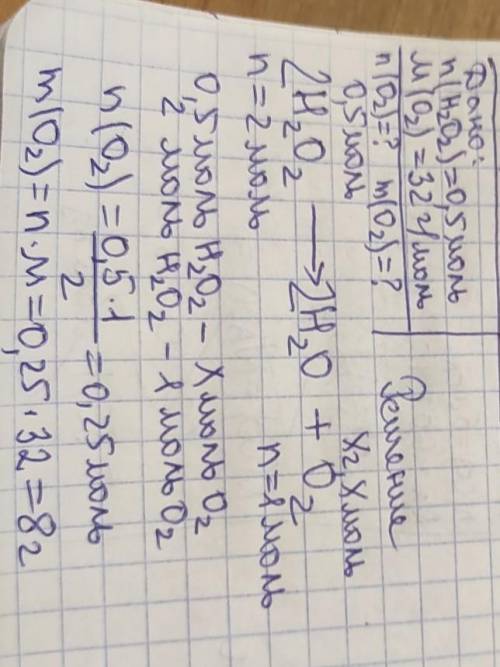 Дано:
n(H₂O₂)=0,5 моль
M(O₂)=32 г/моль
n(O₂)=? m(O₂)=?
Решение
0,5 моль x г, x моль
2H₂O₂ ⟶ 2H₂O + O₂
n=2 моль n=1 моль
0,5 моль H₂O₂ – x моль O₂
2 моль H₂O₂ – 1 моль O₂
n(O₂)=0,5·1/2=0,25 моль
m(O₂)=n·M=0,25·32=8 г